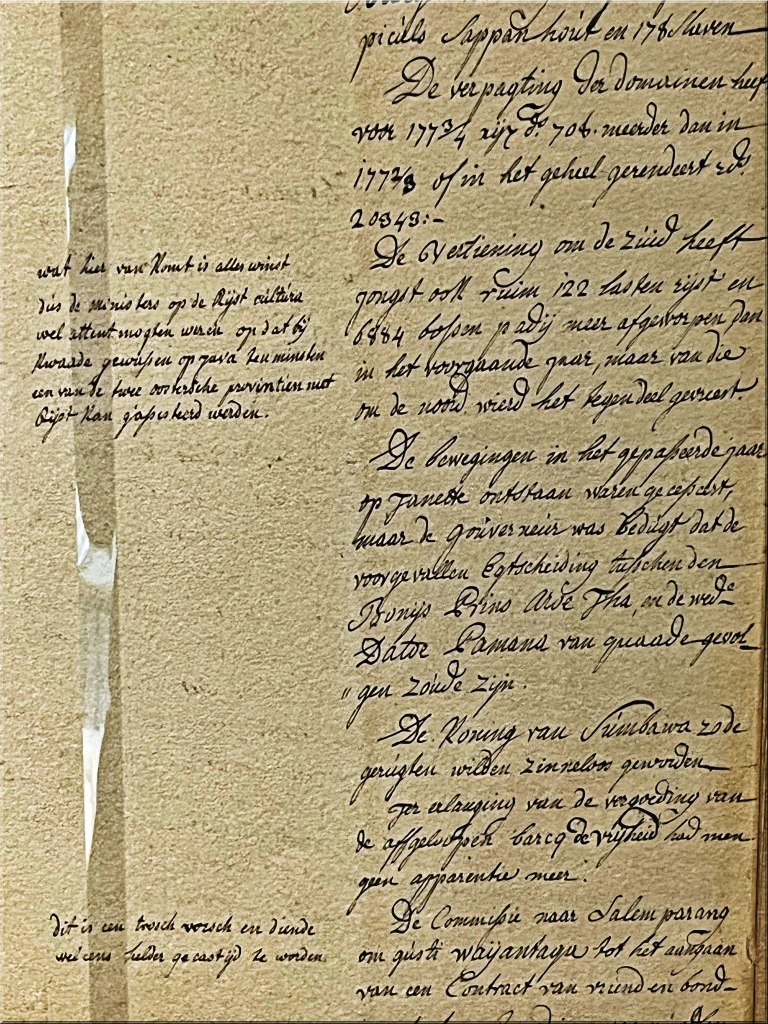 piculs Sappanhout en 178 Slaven
De verpagting der domainen heeft
voor 1773/4 rijx ds. 708. meerder dan in
1772/3 of in het geheel gerendeert rds
20343:-
De Vertiening om de Zúid heeft
jongst ook ruim 122 lasten rijst en
6884 bossen padij meer afgeworpen dan
in het voorgaande jaar, maar van die
om de noord wierd het tegendeel gevreest.
De bewegingen in het gepasseerde jaar
op Tanette ontstaan waren gecesseert,
maar de Goúverneúr was bedúgt dat de
voorgevallen Egtscheiding tusschen den
Bonijs Prins Aroe Tha, en de wede
Datoe Pamana van quaade gevol-
gen zoúde zijn.
De Koning van Súmbawa zode
gerúgten wilden zinneloos geworden
Ter erlanging van de vergoeding van
de affgeloopen barcq de vrijheid had men
geen apparentie meer.
De Commissie naar Salemparang
om gústi waijantaga tot het aangaan
van een Contract van vriend en bond-
wat hier van Komt is alles winst
dús de ministers op de Rijst cultura
wel attent mogten weesen op dat bij
Kwaade gewassen op java ten minsten
een van de twee oostersche provintien met
Rijst Kan g'assisteerd worden.
dit is een trosch vorsch en diende
wel eens helder gecastijd te worden